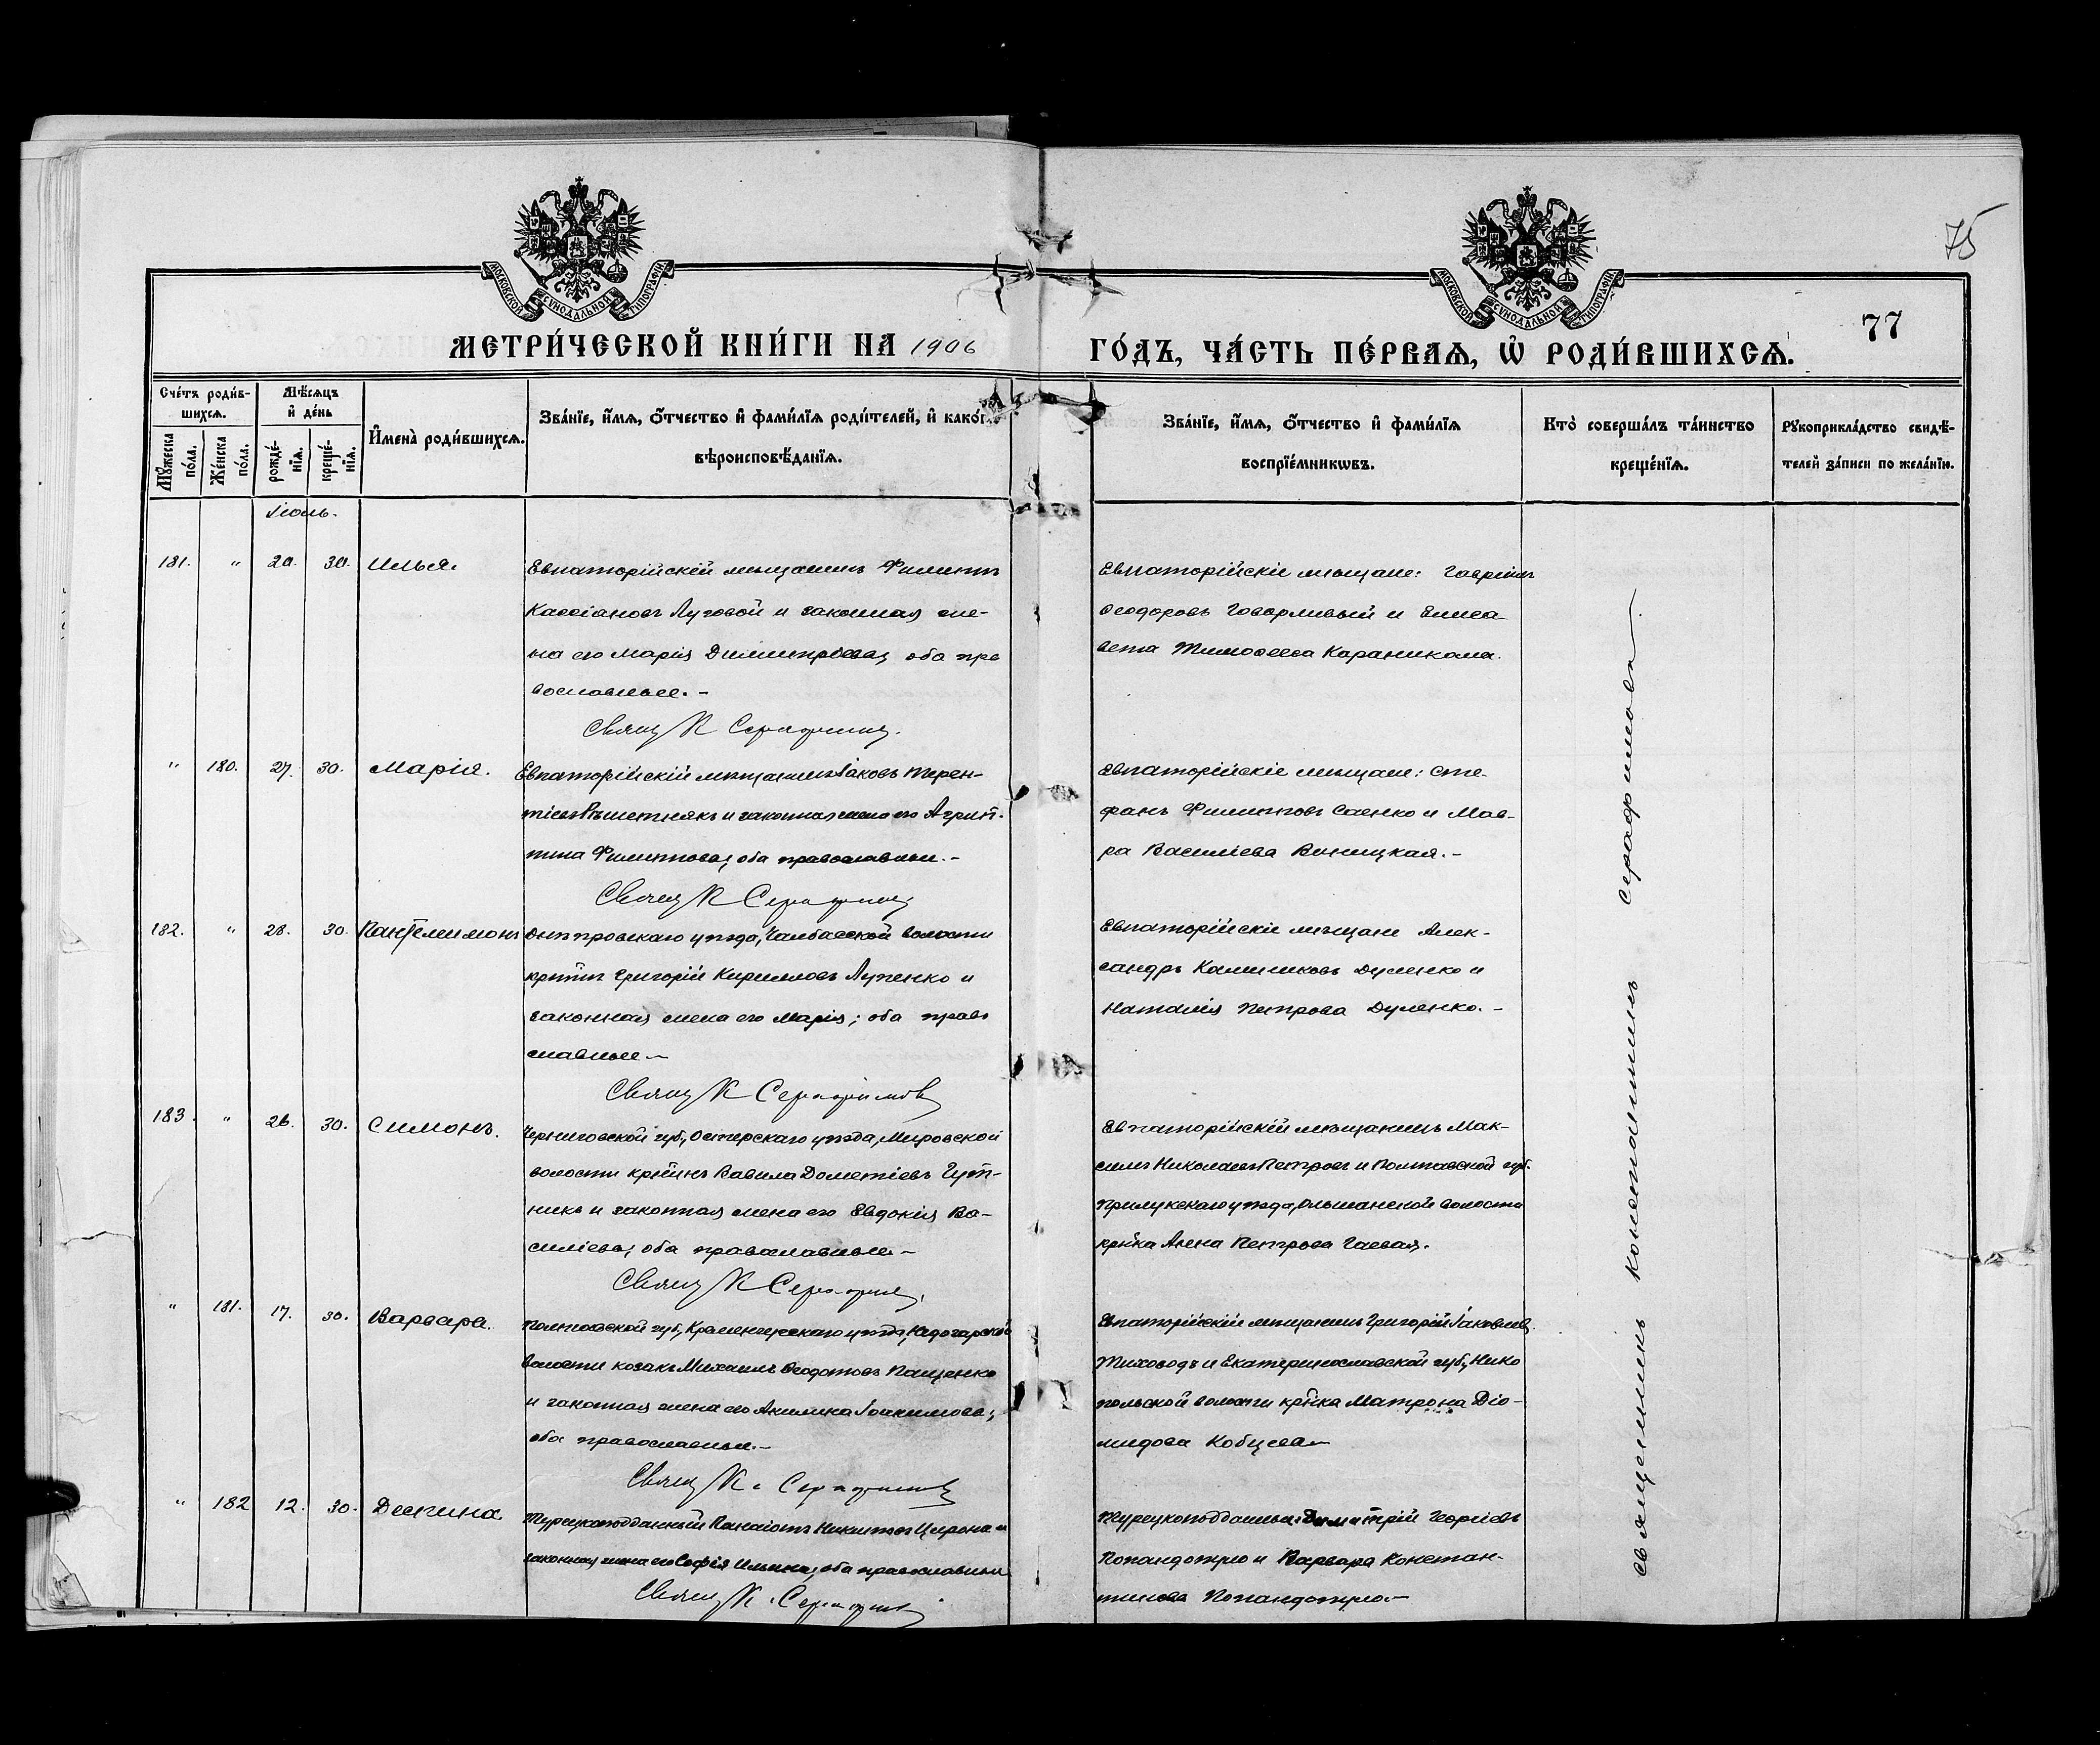 75
77
МОСКОВСКОЙ СѴНОДАЛЬНОЙ ТИПОГРАФІИ
МОСКОВСКОЙ СѴНОДАЛЬНОЙ ТИПОГРАФІИ
МЕТРИ́ЧЕСКОЙ КНИ́ГИ НА 1906 ГО́ДЪ, ЧА́СТЬ ПЕ́РВАѦ, Ѡ҆ РОДИ́ВШИХСѦ.
Сче́тъ роди́в-
шихсѧ.
Мꙋ́жеска по́ла.
Же́нска по́ла.
Мѣ́сѧцъ
и҆ де́нь
рожде́-
нїѧ.
креще́-
нїѧ.
И҆мена̀ роди́вшихсѧ.
Зва́нїе, и҆́мѧ, ѻ҆́тчество и҆ фами́лїѧ роди́телей, и҆ како́гѡ
вѣроисповѣ́данїѧ.
Зва́нїе, и҆́мѧ, ѻ҆́тчество и҆ фами́лїѧ
воспрїе́мникѡвъ.
Кто̀ соверша́лъ та́инство
креще́нїѧ.
Рꙋкоприкла́дство свидѣ́-
телей за́писи по жела́нїю.
Іюль.
181. " 20. 30. Илья.
Евпаторійскій мѣщанинъ Филиппъ
Кассіановъ Луговой и законная же-
на его Марія Димитріева, оба пра
вославные. -
Свящ К Серафимов
Евпаторійскіе мѣщане: Гавріилъ
Ѳеодоровъ Говорливый и Елиса
вета Тимоѳеева Караникола.
" 180. 27. 30. Марія.
Евпаторійскій мѣщанинъ Іаковъ Терен-
тіевъ Рѣшетнякъ и законная жена его Агрип-
пина Филиппова, оба православные. -
Свящ К Серафимов
Евпаторійскіе мѣщане: Сте-
фанъ Филипповъ Саенко и Мав-
ра Василіева Виницкая. -
182. " 28. 30. Пантелеимонъ
Днѣпровскаго уѣзда, Чалбасской волости
крнинъ Григорій Кирилловъ Луценко и
законная жена его Марія; оба право
славные -
Свящ К Серафимов
Евпаторійскіе мѣщане Алек-
сандръ Калиниковъ Дуленко и
Наталія Петрова Дуленко. -
183. " 26. 30. Симонъ.
Черниговской губ, Остерскаго уѣзда, Мировской
волости крнинъ Вавила Дометіевъ Гут-
никъ и законная жена его Евдокія Ва-
силіева, оба православные -
Свящ К Серафимов
Евпаторійскій мѣщанинъ Мак-
симъ Николаевъ Петровъ и Полтавской губ.
Прилукскаго уѣзда, Ольшанской волости
крнка Анна Петрова Гаевая.
" 181. 17. 30. Варвара.
Полтавской губ, Кременчугскаго уѣзда,
волости козакъ Михаилъ Ѳеодотовъ Пащенко
и законная жена его Акилина Іоакимова;
оба православные. -
Свящ К. Серафимов
Евпаторійскій мѣщанинъ Григорій Іаковлев.
Тиховодъ и Екатеринославской губ, Нико
польской волости крнка Матрона Діо-
мидова Кобцева -
" 182 12. 30. Деспина
Турецкоподданный Панаіотъ Никитовъ Цирона и
законная жена его Софія Ильина; оба православные
Свящ К. Серафимов
Турецкоподданные: Димитрій Георгіевъ
Попандопуло и Варвара Констан-
тинова Попандопуло -
Священникъ Константинъ Серафимовъ.